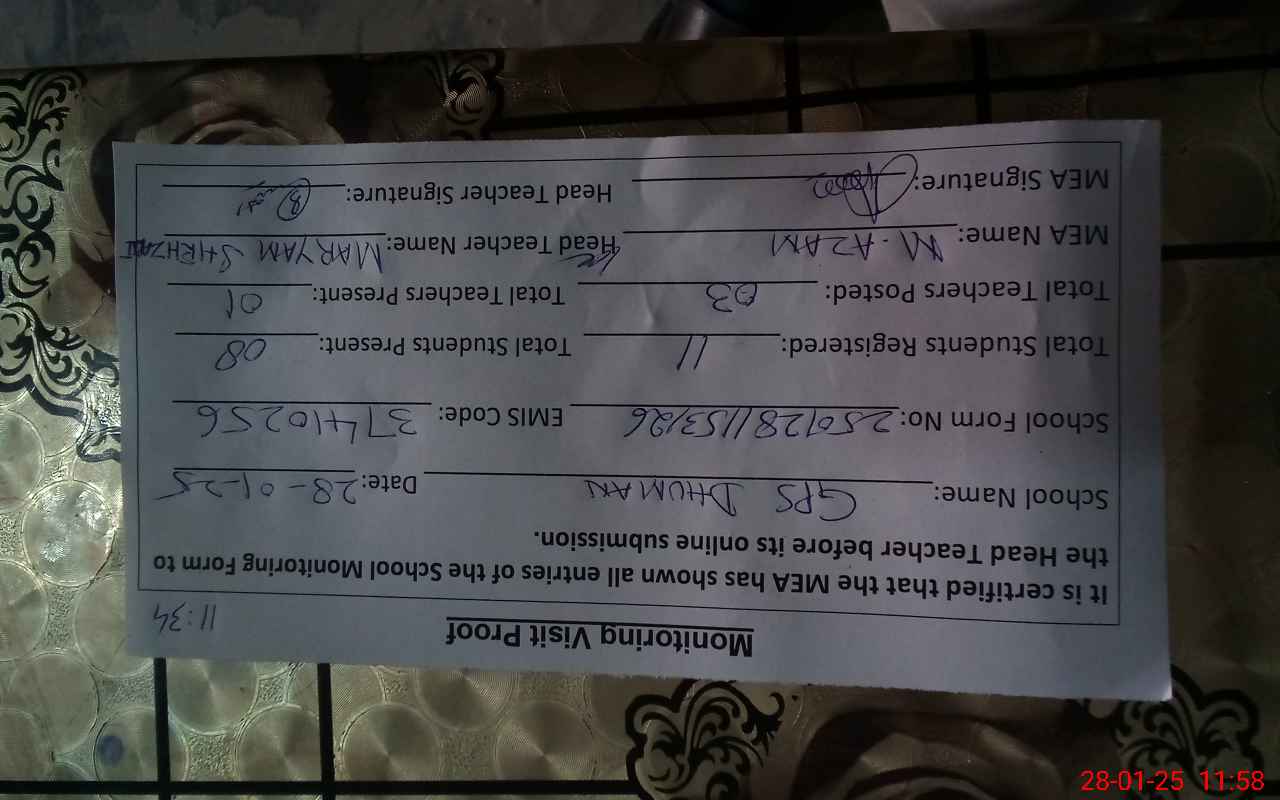 Monitoring Visit Proof 11:34
It is certified that the MEA has shown all entries of the School Monitoring Form to
the Head Teacher before its online submission.
School Name: GPS DHUMAN Date: 28-01-25
School Form No: 250128115326 EMIS Code: 37410256
Total Students Registered: 11 Total Students Present: 08
Total Teachers Posted: 03 Total Teachers Present: 01
MEA Name: M. AZAM Head Teacher Name: MARYAM
MEA Signature: Head Teacher Signature:
28-01-25 11:58